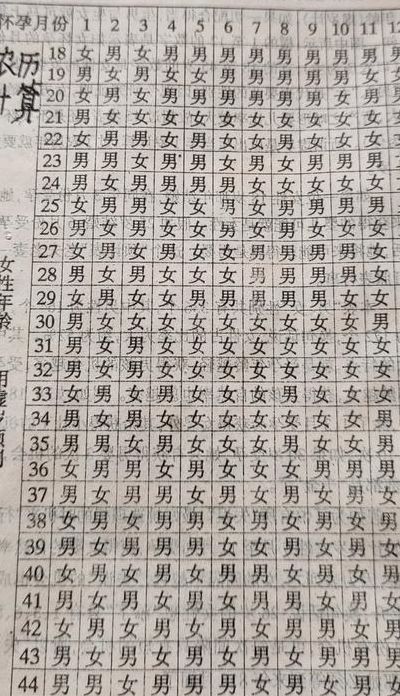 怀孕月份 1 2 3 4 5 6 7 8 9 10 11 12
农历
计算
女性年龄
18 女 男 女 男 男 男 男 男 男 男 男 男
19 男 女 男 女 女 男 男 男 男 男 女 女
20 女 男 女 男 男 男 男 男 男 女 男 男
21 男 女 女 女 女 女 女 女 女 女 女 女
22 女 男 男 女 男 女 女 男 女 女 女 女
23 男 男 女 男 男 女 男 女 男 男 男 女
24 男 女 男 男 男 男 女 女 女 女 女
25 女 男 男 女 女 男 女 男 男 男 男 男
26 男 女 男 女 女 男 女 男 女 女 女 女
27 女 男 女 男 女 女 男 男 男 男 女 男
28 男 女 男 女 女 女 男 男 男 男 男 女
29 女 男 女 女 男 男 男 男 男 女 女 女
30 男 女 女 女 女 女 女 女 女 女 女 男
31 男 女 男 女 女 女 女 女 女 女 女 女
32 男 女 男 女 女 女 女 女 女 女 女 女
33 女 男 女 男 女 女 女 男 女 女 女 女
34 男 女 男 女 女 女 女 女 女 女 女 男
35 男 男 女 男 女 女 女 男 女 女 女 男
36 女 男 男 女 男 女 女 女 男 男 男 男
37 男 女 男 男 女 男 女 男 女 男 女 男
38 女 男 女 男 男 女 男 女 男 女 男 女
39 男 女 男 男 男 女 女 男 女 男 女 女
40 女 男 女 男 女 男 男 女 男 女 男 女
41 男 女 男 女 男 女 男 男 女 男 女 男
42 女 男 女 男 女 男 女 男 男 女 男 女
43 男 女 男 女 男 女 男 女 男 男 男 男
44 男 男 女 男 男 男 女 男 女 男 女 女